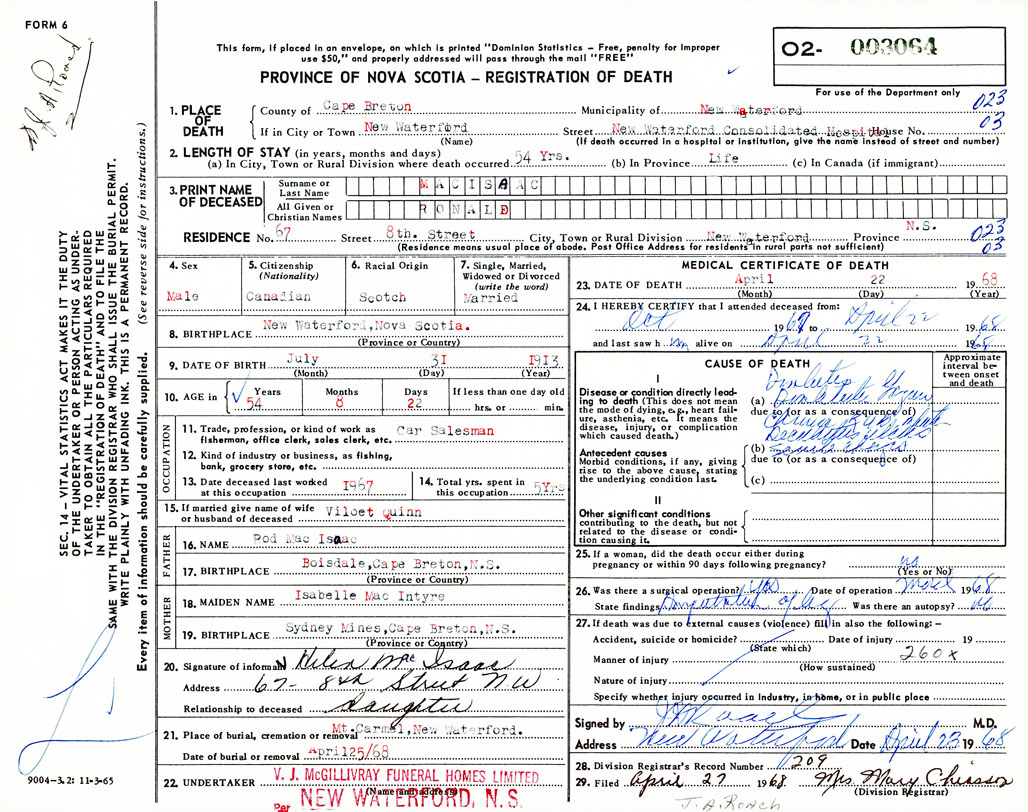 FORM 6
This form, if placed in an envelope, on which is printed "Dominion Statistics – Free, penalty for improper
use $50," and properly addressed will pass through the mail "FREE"
PROVINCE OF NOVA SCOTIA – REGISTRATION OF DEATH
02- 003064
For use of the Department only
023
03
1. PLACE OF DEATH
County of Cape Breton Municipality of New Waterford
If in City or Town New Waterford Street New Waterford Consolidated Hospital House No.
(Name) (If death occurred in a hospital or institution, give the name instead of street and number)
2. LENGTH OF STAY (in years, months and days)
(a) In City, Town or Rural Division where death occurred 54 Yrs. (b) In Province Life (c) In Canada (if immigrant)
3. PRINT NAME OF DECEASED
Surname or Last Name MACISAAC
All Given or Christian Names RONALD
RESIDENCE No. 67 Street 8th. Street City, Town or Rural Division New Waterford Province N.S.
(Residence means usual place of abode. Post Office Address for residents in rural parts not sufficient)
023
03
4. Sex
Male
5. Citizenship
(Nationality)
Canadian
6. Racial Origin
Scotch
7. Single, Married,
Widowed or Divorced
(write the word)
Married
8. BIRTHPLACE New Waterford, Nova Scotia.
(Province or Country)
9. DATE OF BIRTH July 31 1913
(Month) (Day) (Year)
10. AGE in Years Months Days If less than one day old
54 8 22 hrs. or min.
OCCUPATION
11. Trade, profession, or kind of work as
fisherman, office clerk, sales clerk, etc. Car Salesman
12. Kind of industry or business, as fishing,
bank, grocery store, etc.
13. Date deceased last worked
at this occupation 1967
14. Total yrs. spent in
this occupation 5Yrs
15. If married give name of wife
or husband of deceased Viloet Quinn
FATHER
16. NAME Rod Mac Isaac
17. BIRTHPLACE Boisdale, Cape Breton, N.S.
(Province or Country)
MOTHER
18. MAIDEN NAME Isabelle Mac Intyre
19. BIRTHPLACE Sydney Mines, Cape Breton, N.S.
(Province or Country)
20. Signature of informant Helen Mac Isaac
Address 67- 8th Street N W
Relationship to deceased daughter
21. Place of burial, cremation or removal Mt. Carmel, New Waterford.
Date of burial or removal April 25/68
22. UNDERTAKER V. J. McGILLIVRAY FUNERAL HOMES LIMITED
(Name and address)
Per NEW WATERFORD, N. S.
MEDICAL CERTIFICATE OF DEATH
23. DATE OF DEATH April 22 1968
(Month) (Day) (Year)
24. I HEREBY CERTIFY that I attended deceased from:
Oct 1967 to April 22 1968
and last saw him alive on April 22 1968
CAUSE OF DEATH
Approximate
interval be-
tween onset
and death
I
Disease or condition directly lead-
ing to death (This does not mean
the mode of dying, e.g., heart fail-
ure, asthenia, etc. It means the
disease, injury, or complication
which caused death.)
Diabetes &
(a) Diabetic
due to (or as a consequence of)
Antecedent causes
Morbid conditions, if any, giving
rise to the above cause, stating
the underlying condition last.
(b)
due to (or as a consequence of)
(c)
II
Other significant conditions
contributing to the death, but not
related to the disease or condi-
tion causing it.
25. If a woman, did the death occur either during
pregnancy or within 90 days following pregnancy? no
(Yes or No)
26. Was there a surgical operation? yes Date of operation March 1968
State findings Amputation of leg Was there an autopsy? no
27. If death was due to external causes (violence) fill in also the following: –
Accident, suicide or homicide? Date of injury 19
(State which)
Manner of injury 260x
(How sustained)
Nature of injury
Specify whether injury occurred in Industry, in home, or in public place
Signed by J A Roach M.D.
Address New Waterford Date April 23 1968
28. Division Registrar's Record Number 209
29. Filed April 27 1968 Mrs. Mary Chiasson
(Division Registrar)
J. A. Roach
SEC. 14 – VITAL STATISTICS ACT MAKES IT THE DUTY
OF THE UNDERTAKER OR PERSON ACTING AS UNDER-
TAKER TO OBTAIN ALL THE PARTICULARS REQUIRED
IN THE "REGISTRATION OF DEATH" AND TO FILE THE
SAME WITH THE DIVISION REGISTRAR WHO SHALL ISSUE THE BURIAL PERMIT.
WRITE PLAINLY WITH UNFADING INK. THIS IS A PERMANENT RECORD.
Every item of information should be carefully supplied. (See reverse side for instructions.)
9004-3.2: 11-3-65